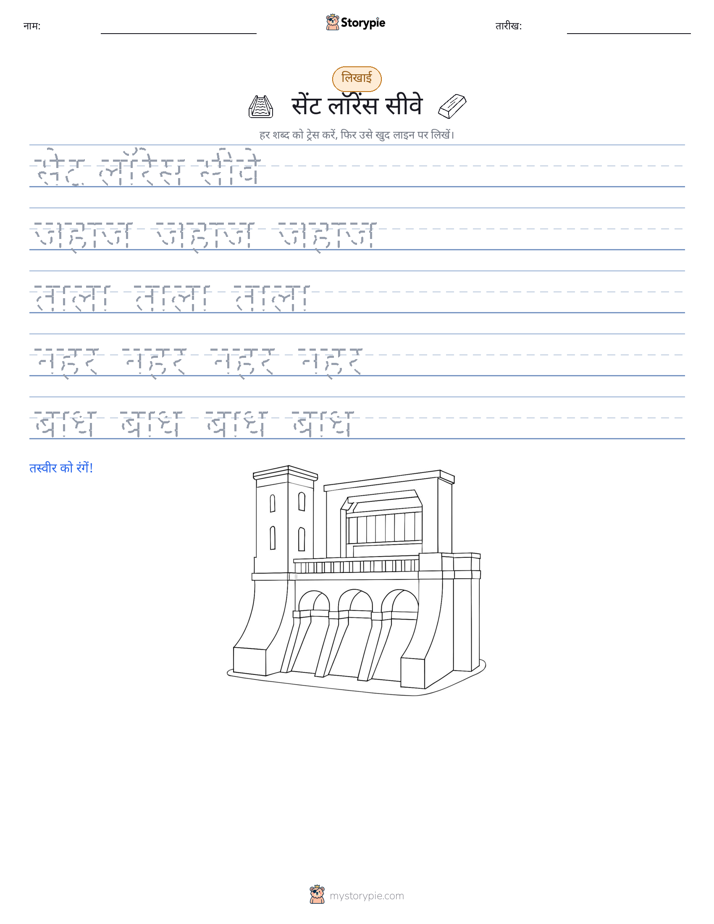 नाम:
Storypie
तारीख:
लिखाई
सेंट लॉरेंस सीवे
हर शब्द को ट्रेस करें, फिर उसे खुद लाइन पर लिखें।
सेंट लॉरेंस सीवे
जहाज जहाज जहाज
ताला ताला ताला
नहर नहर नहर नहर
बांध बांध बांध बांध
तस्वीर को रंगें!
mystorypie.com